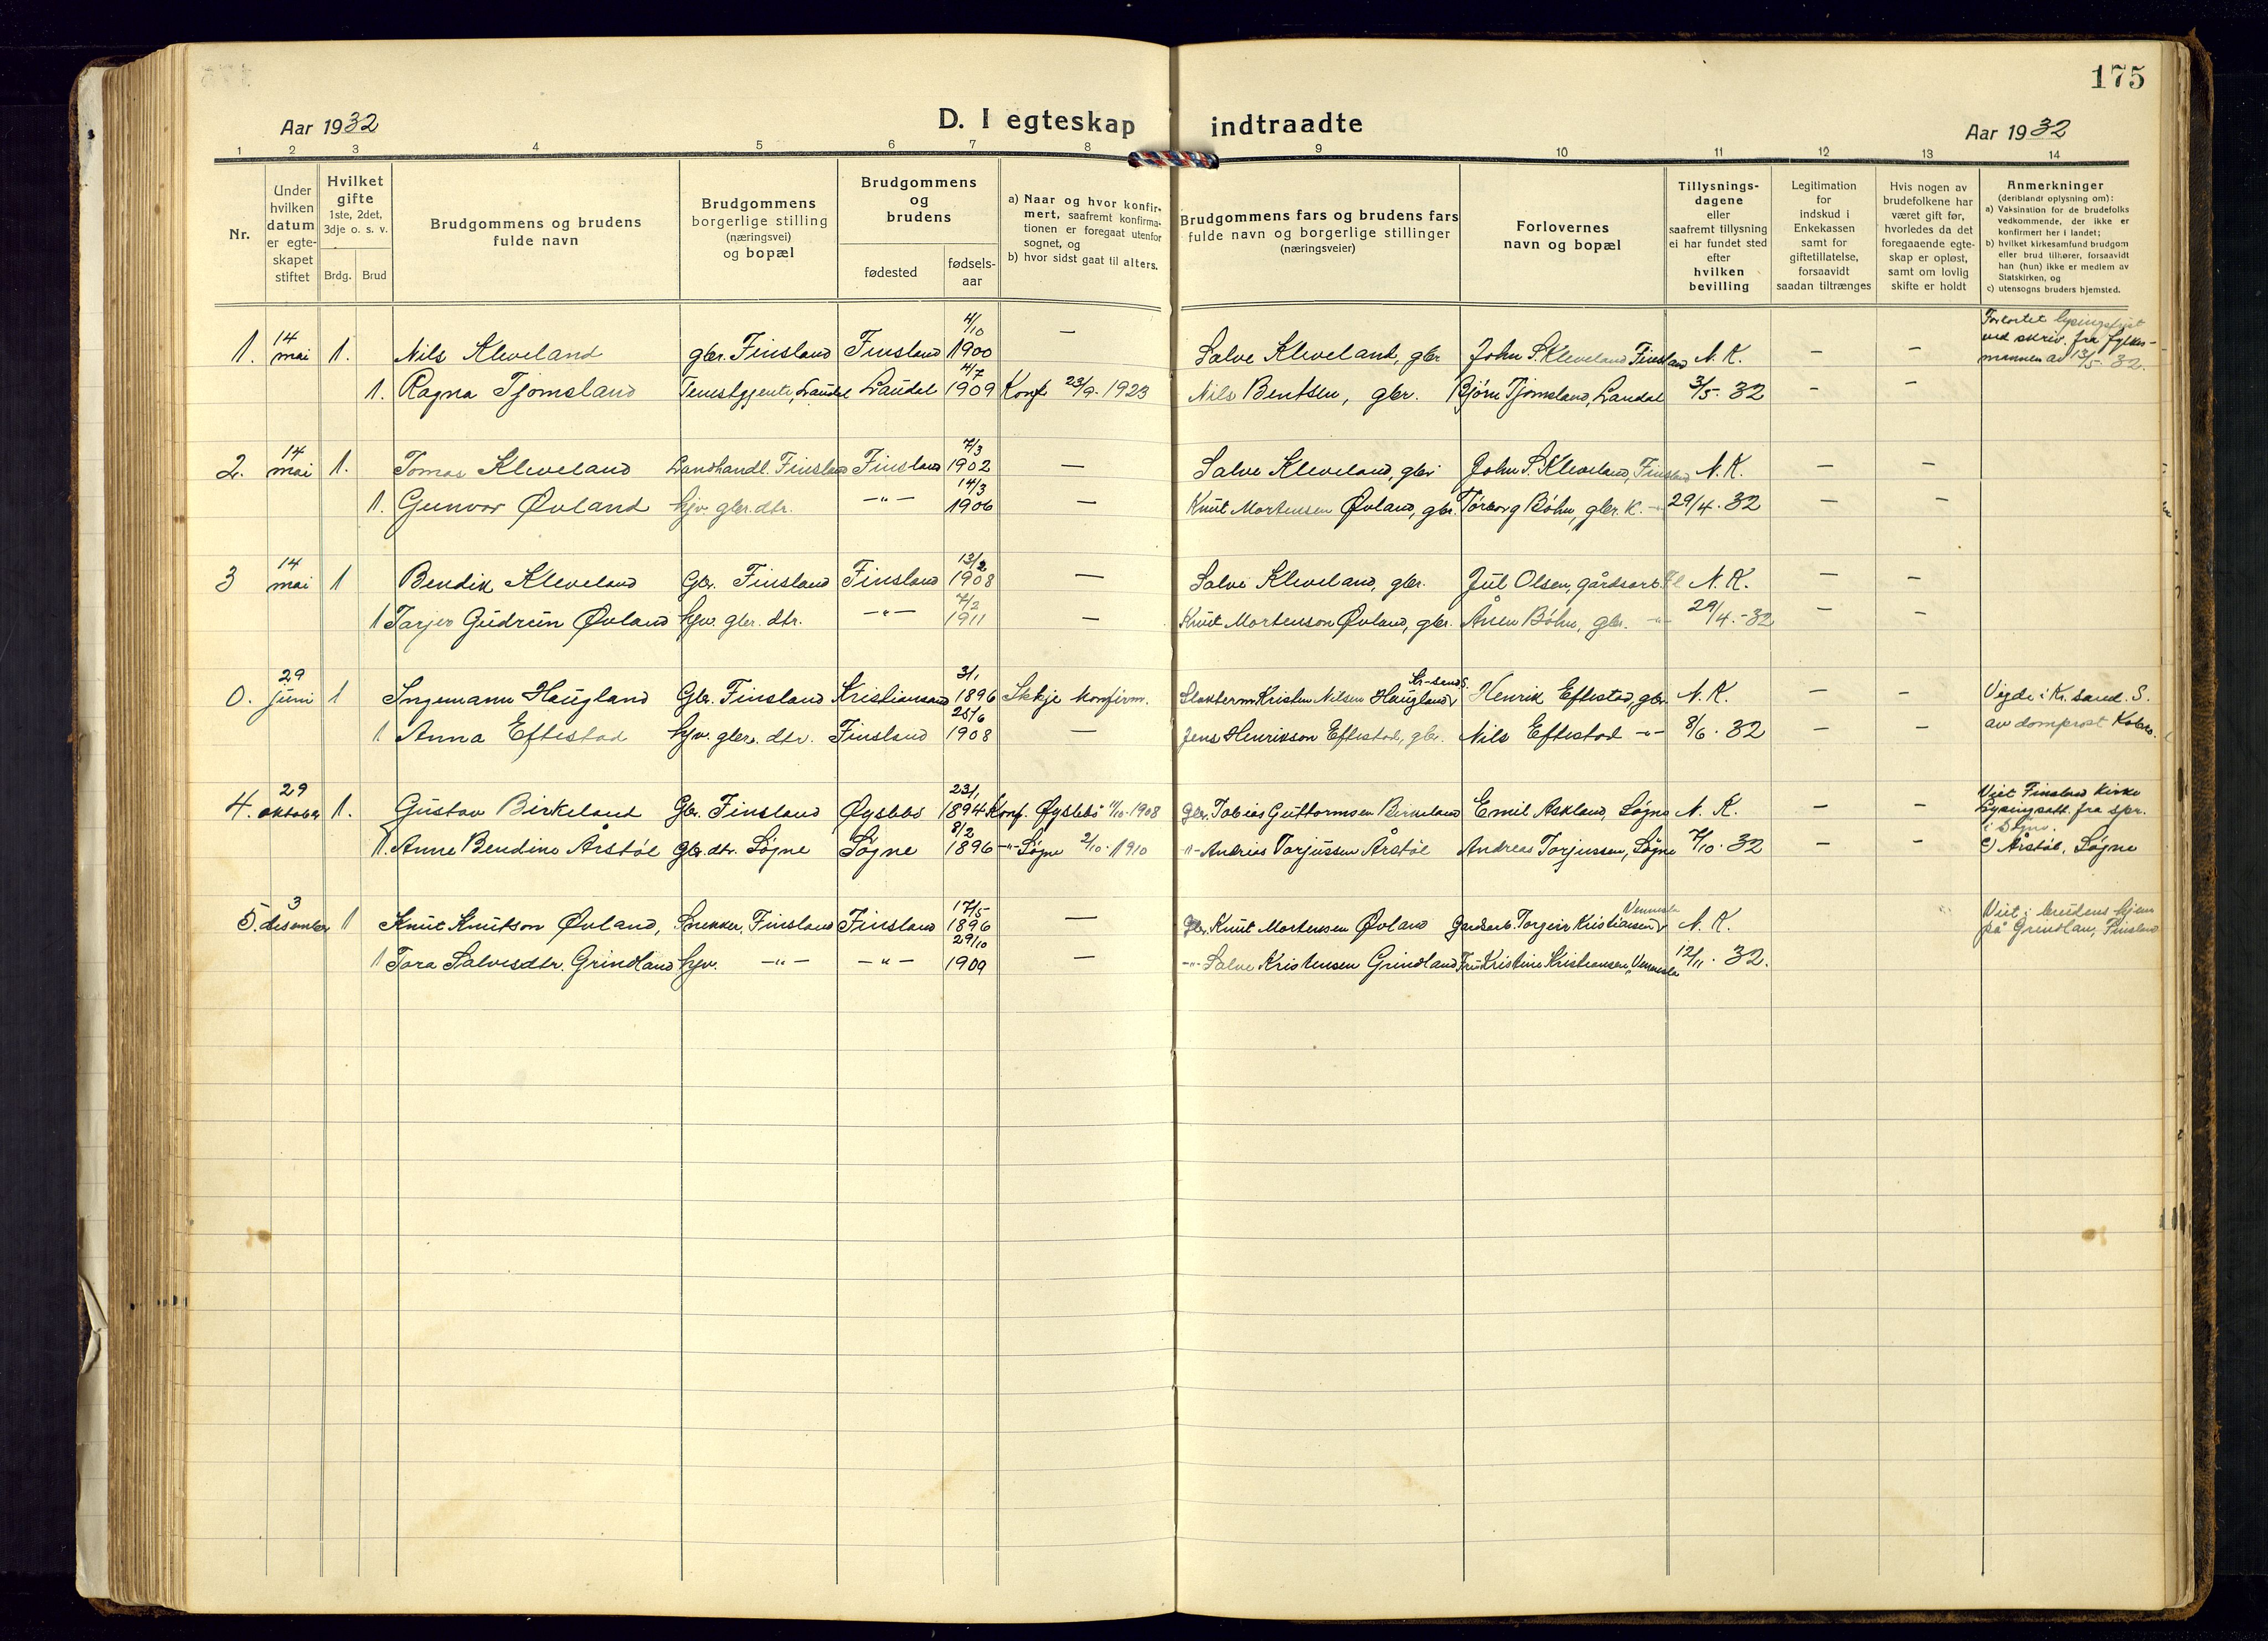 175
Aar 1932
D. I egteskap indtraadte
Aar 1932
1 2 3 4 5 6 7 8 9 10 11 12 13 14
Nr.
Under hvilken datum er egteskapet stiftet
Hvilket gifte 1ste, 2det, 3dje o. s. v.
Brdg. Brud
Brudgommens og brudens fulde navn
Brudgommens borgerlige stilling (næringsvei) og bopæl
Brudgommens og brudens
fødested
fødselsaar
a) Naar og hvor konfirmert, saafremt konfirmationen er foregaat utenfor sognet, og
b) hvor sidst gaat til alters.
Brudgommens fars og brudens fars fulde navn og borgerlige stillinger (næringsveier)
Forlovernes navn og bopæl
Tillysningsdagene eller saafremt tillysning ei har fundet sted efter hvilken bevilling
Legitimation for indskud i Enkekassen samt for giftetillatelse, forsaavidt saadan tiltrænges
Hvis nogen av brudefolkene har været gift før, hvorledes da det foregaaende egteskap er opløst, samt om lovlig skifte er holdt
Anmerkninger (deriblandt oplysning om):
a) Vaksination for de brudefolks vedkommende, der ikke er konfirmert her i landet;
b) hvilket kirkesamfund brudgom eller brud tilhører, forsaavidt han (hun) ikke er medlem av Statskirken, og
c) utensogns bruders hjemsted.
1. 14 mai 1. Nils Kleveland gbr. Finsland Finsland 4/10 1900 — Salve Kleveland, gbr John S. Kleveland Finsland N. K. — — Forkortet lysingsfrist ved skriv. fra fylkesmannen av 13/5-32.
1. Ragna Tjomsland Tenestgjente, Laudal Laudal 4/7 1909 Konf 23/9-1923 Nils Bentsen, gbr. Bjørn Tjomsland, Laudal 3/5-32 — —
2. 14 mai 1. Tomas Kleveland Landhandl. Finsland Finsland 7/3 1902 — Salve Kleveland, gbr John S. Kleveland, Finsland N. K. — —
1. Gunvor Øvland hjv. gbr.dtr. —"— 14/3 1906 — Knut Mortensen Øvland, gbr. Torborg Bóhn, gbr. k. —"— 29/4.32 — —
3 14 mai 1 Bendik Kleveland Gbr. Finsland Finsland 13/2 1908 — Salve Kleveland, gbr. Jul Olsen, gårdsarb. Fl N. K. — —
1 Tarjer Gudrun Øvland hjv. gbr. dtr. —"— 7/2 1911 — Knut Mortenson Øvland, gbr. Ånen Bóhn, gbr. —"— 29/4.-32 — —
0. 29 juni 1 Ingemann Haugland Gbr. Finsland Kristiansand 31/1 1896 Ikkje konfirm. Slakterm. Kristen Nilsen Haugland, Kr-sand S. Henrik Eftestad, gbr N. K. — — Vigde i Kr.sand. S.
1 Anna Eftestad hjv. gbr. dtr. Finsland 25/6 1908 — Jens Henrikson Eftestad, gbr. Nils Eftestad —"— 8/6.32 — — av domprost
4. 29 oktober 1. Gustav Birkeland Gbr. Finsland Øyslebø 23/1 1894 Konf. Øyslebö 11/10-1908 Gbr. Tobias Guttormsen Birkeland Emil Aakland, Søgne N. K. — — Viet Finsland kirke Lysingsatt. fra spr. i Søgne.
1. Anne Bendine Årstöl gbr.dtr. Søgne Søgne 8/2 1896 —"— Søgne 2/10-1910 —"— Andreas Torjussen Årstöl Andreas Torjussen, Søgne 7/10.32 — — c) Årstöl, Søgne
5. 3 desember 1 Knut Knutson Øvland, Snekker, Finsland Finsland 17/5 1896 — Gbr. Knut Mortensen Øvland Gardsarb. Torgeir Kristiansen, Vennesla N. K. Viet i brudens hjem
1 Tora Salvesdtr. Grindland hjv. —"— —"— 29/10 1909 — —"— Salve Kristensen Grindland Fru Kristine Kristiansen, Vennesla 12/11.32. på Grindlan, Finsland